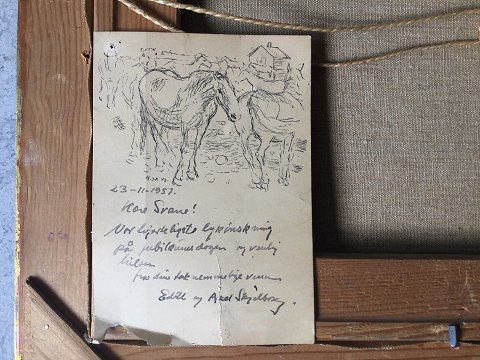 23-11-1957.
Kære Svane!
Vor hjerteligste lykønskning
på jubilæumsdagen og venlig
hilsen
fra dine taknemmelige venner
Edit og Axel Skjelborg.